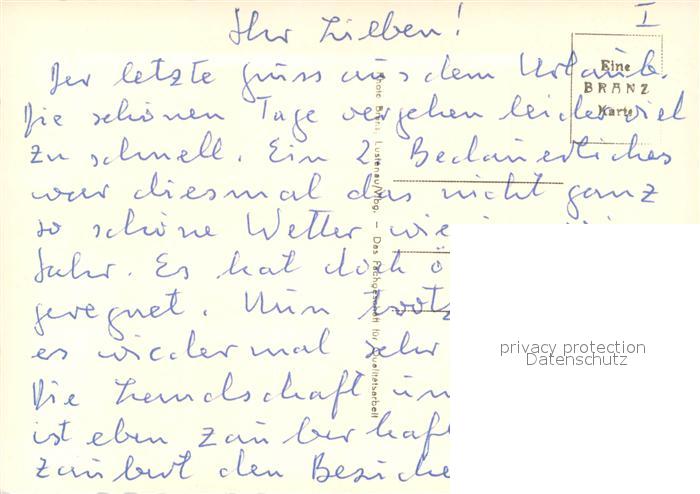 I
Ihr Lieben!
Der letzte Gruss aus dem Urlaub.
Die schönen Tage vergehen leider viel
zu schnell. Ein 2. Bedauerliches
war diesmal das nicht ganz
so schöne Wetter wie
Jahr. Es hat doch
geregnet. Nun trotz
es wieder mal sehr
Die Landschaft
ist eben zauberhaft
zaubert den
Eine
BRANZ
Karte
Photo Branz, Lustenau/Vlbg. — Das Fachgeschäft für Qualitätsarbeit
privacy protection
Datenschutz